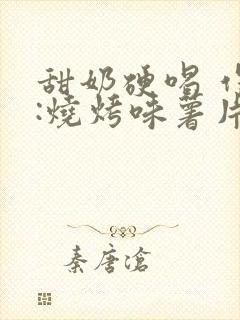 甜奶硬唱
:燒烤味薯片
秦唐滄